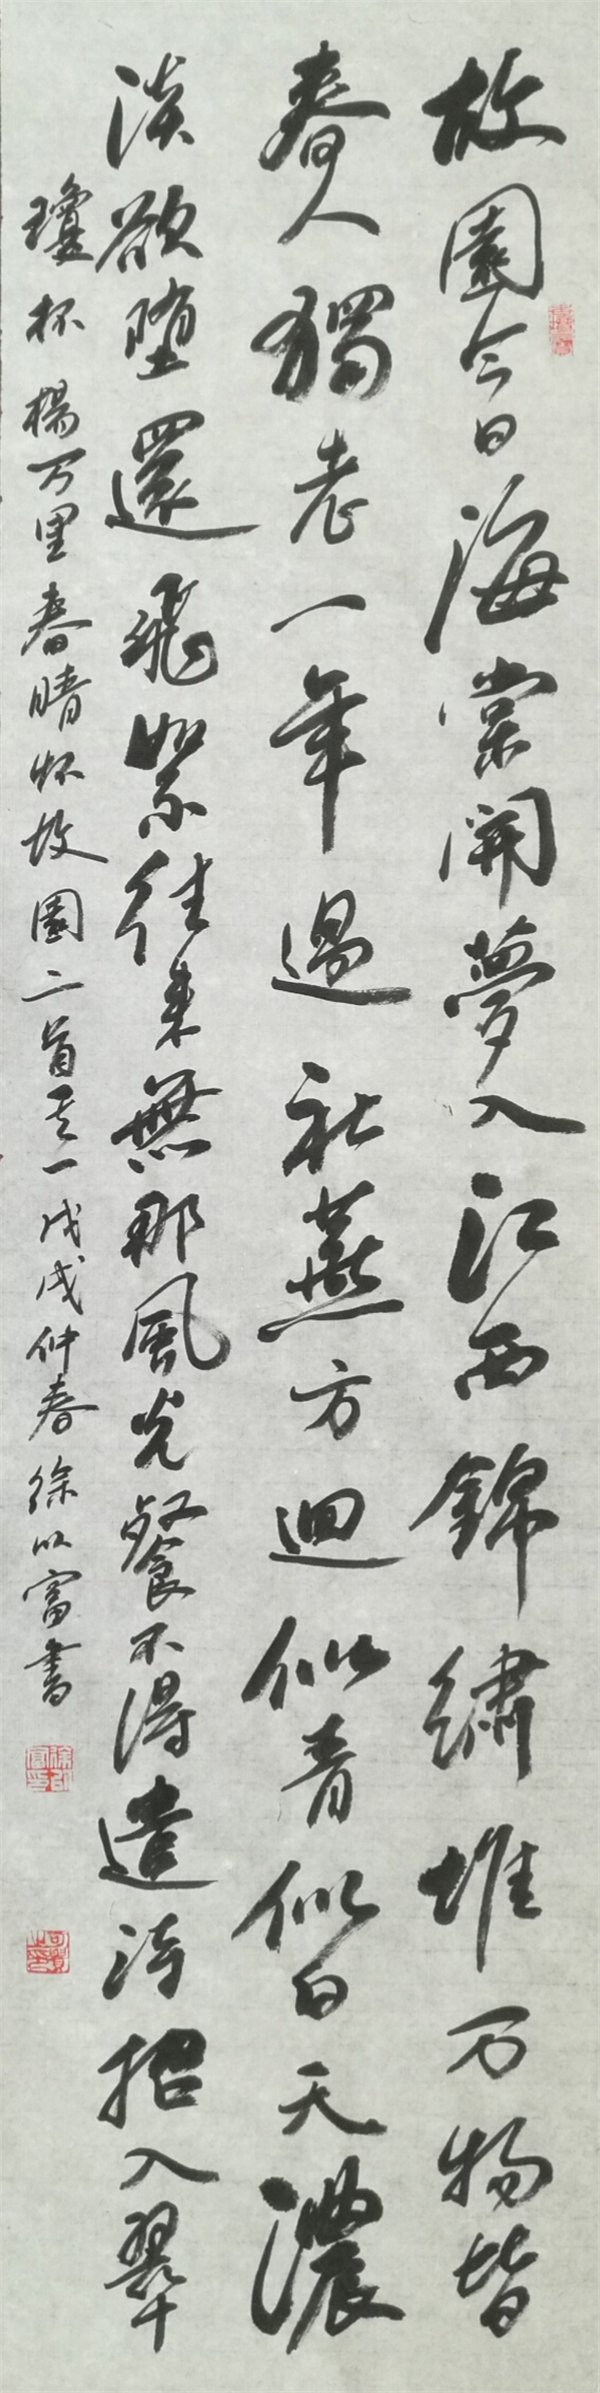 故園今日海棠開夢入江西錦繡堆万物皆
春人獨老一年過社燕方迴似青似白天濃
淡欲堕還飛絮往来無那風光餐不得遣诗招入翠
瓊杯 楊万里春晴怀故園二首其一戊戌仲春徐以富書